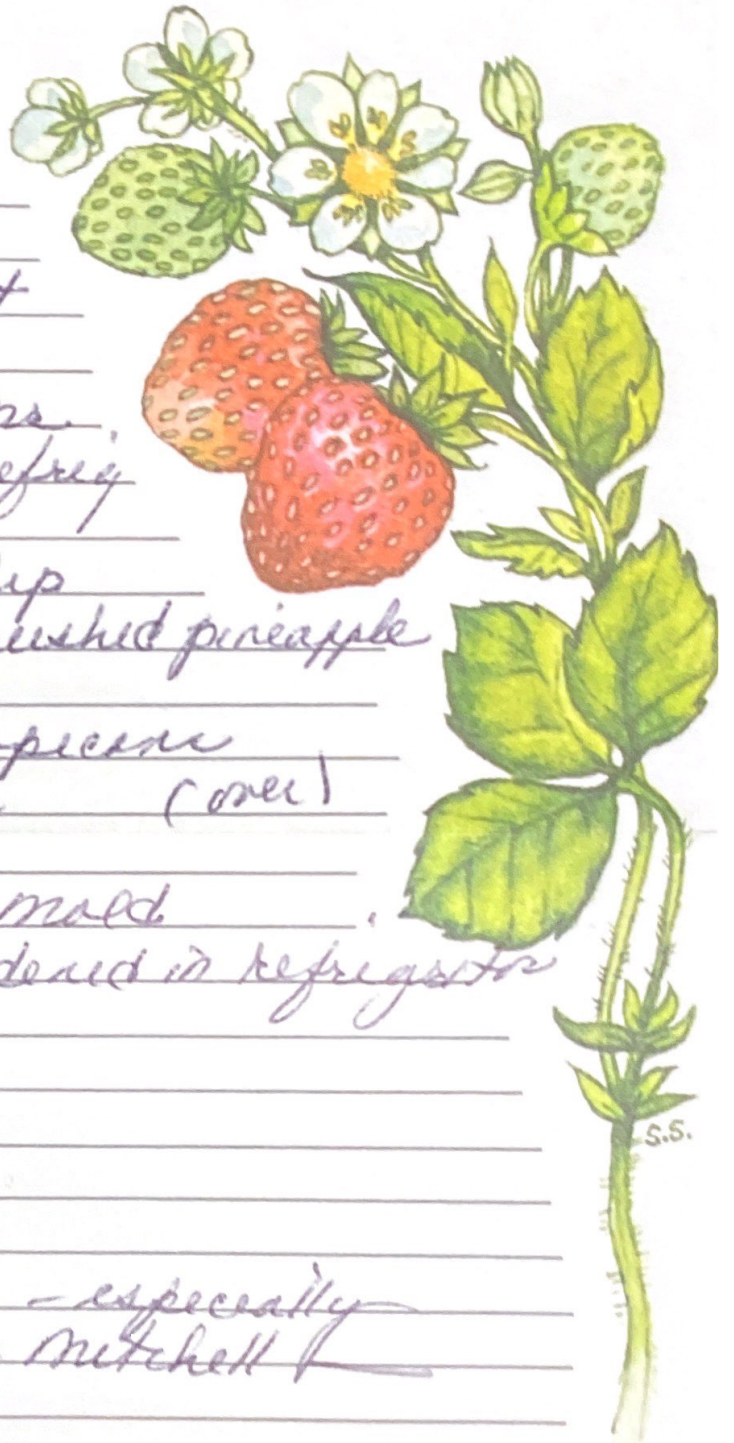 t
ns.
efrig
up
ushed pineapple
pecans
(over)
mold
dened in refrigerator
S.S.
- especially
Mitchell